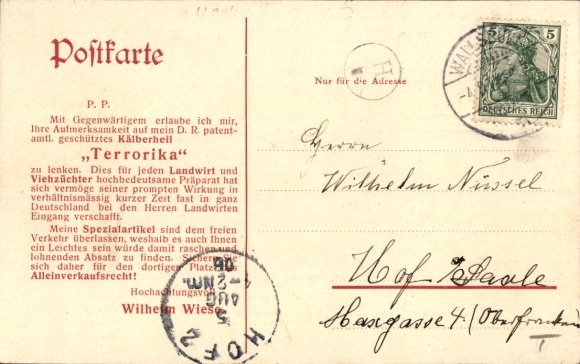 Postkarte
Nur für die Adresse
P. P.
Mit Gegenwärtigem erlaube ich mir,
Ihre Aufmerksamkeit auf mein D. R. patent-
amtl. geschütztes Kälberheil
„Terrorika“
zu lenken. Dies für jeden Landwirt und
Viehzüchter hochbedeutsame Präparat hat
sich vermöge seiner prompten Wirkung in
verhältnismässig kurzer Zeit fast in ganz
Deutschland bei den Herren Landwirten
Eingang verschafft.
Meine Spezialartikel sind dem freien
Verkehr überlassen, weshalb es auch Ihnen
ein Leichtes sein würde damit raschen und
lohnenden Absatz zu finden. Sichern Sie
sich daher für den dortigen Platz das
Alleinverkaufsrecht!
Hochachtungsvoll
Wilhelm Wiese
5 5
DEUTSCHES REICH
H
Herrn
Wilhelm Nüssel
Hof a/Saale
Maxgasse 4/(Oberfranken
HOF 2
5
AUG
2-4 NM.
08